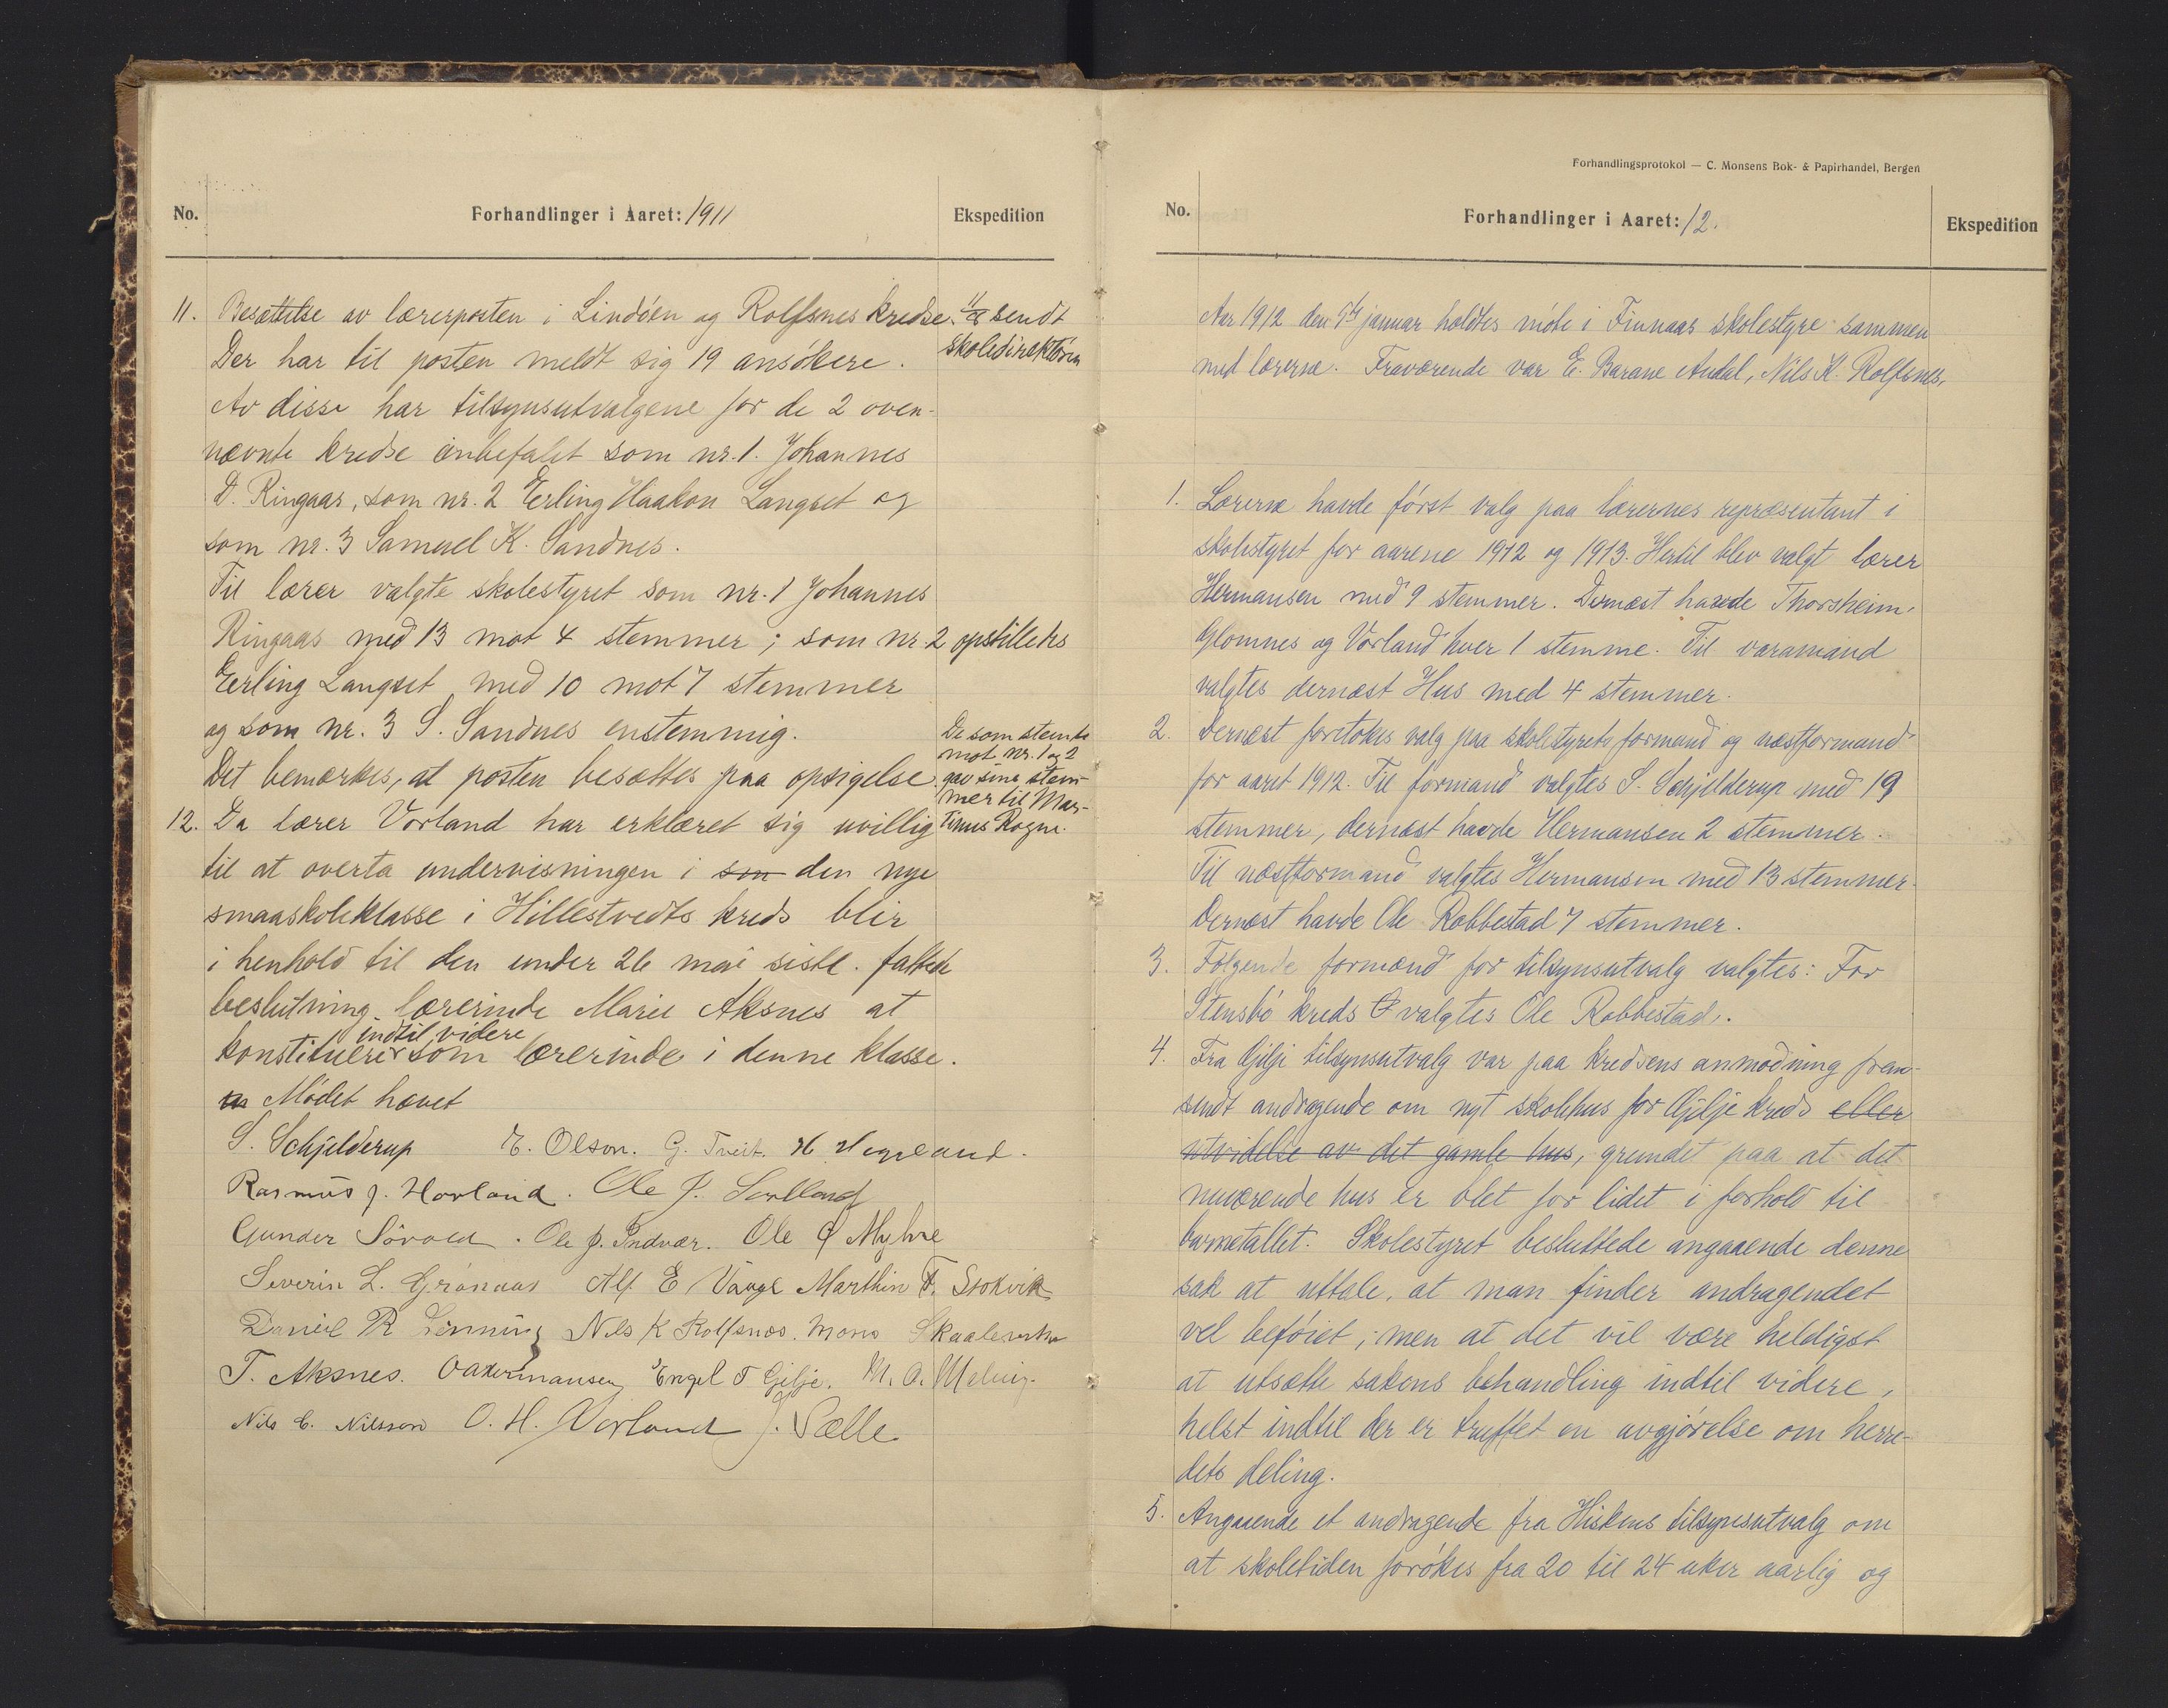 No.
Forhandlinger i Aaret: 1911
Ekspedition
11. Besættelse av lærerposten i Lindöen og Rolfsnes kredse.
sendt
skoledirektören
Der har til posten meldt sig 19 ansökere.
Av disse har tilsynsutvalgene for de 2 oven-
nævnte kredse anbefalet som nr. 1. Johannes
D. Ringaas, som nr. 2 Erling Haakon Langset og
som nr. 3 Samuel K. Sandnes.
Til lærer valgte skolestyret som nr. 1 Johannes
Ringaas med 13 mot 4 stemmer; som nr. 2 opstilledes
Erling Langset med 10 mot 7 stemmer
og som nr. 3 S. Sandnes enstemmig.
Det bemærkes, at posten besættes paa opsigelse.
De som stemte
mot nr. 1 og 2
gav sine stem-
mer til Mar-
tinus Rogne.
12. Da lærer Vorland har erklæret sig uvillig
til at overta undervisningen i som den nye
smaaskoleklasse i Hillestvedts kreds blir
i henhold til den under 26 mai sistl. fattede
beslutning lærerinde Marie Aksnes at
indtil videre
konstituere som lærerinde i denne klasse.
Mödet hævet
S. Schjelderup E. Olson. G. Tveit. H
Rasmus J. Hovland. Ole J.
Gunder Ole J. Indvær. Ole Myhre
Severin L. Grönaas Alf E Vaage Marthin T. Stokvik
Daniel R Nils K Rolfsnes. Mons
T. Aksnes. O. Hermansen Engel T Gilje. M. O.
Nils C. Nilsson O. H. Vorland J. Sælle
Forhandlingsprotokol — C. Monsens Bok- & Papirhandel, Bergen
No.
Forhandlinger i Aaret: 12.
Ekspedition
Aar 1912 den januar holdtes möte i Finnaas skolestyre sammen
med lærerne. Fraværende var E. Barane Andal, Nils K. Rolfsnes,
1. Lærerne havde först valg paa lærernes repræsentant i
skolestyret for aarene 1912 og 1913. Hertil blev valgt lærer
Hermansen med 9 stemmer. Dernæst havde Thorsheim,
Glomnes og Vorland hver 1 stemme. Til varamand
valgtes dernæst Hus med 4 stemmer.
2. Dernæst foretokes valg paa skolestyrets formand og næstformand
for aaret 1912. Til formand valgtes S. Schjelderup med 19
stemmer, dernæst havde Hermansen 2 stemmer.
Til næstformand valgtes Hermansen med 13 stemmer.
Dernæst havde Ole Robbestad 7 stemmer.
3. Folgende formænd for tilsynsutvalg valgtes: For
Stensbö kreds valgtes Ole Robbestad.
4. Fra Gilje tilsynsutvalg var paa kredsens anmodning frem-
sendt andragende om nyt skolehus for Gilje kreds eller
utvidelse av det gamle hus, grundet paa at det
nuværende hus er blet for lidet i forhold til
barnetallet. Skolestyret besluttede angaaende denne
sak at uttale, at man finder andragendet
vel beföiet, men at det vil være heldigst
at utsætte sakens behandling indtil videre,
helst indtil der er truffet en avgjörelse om herre-
dets deling.
5. Angaaende et andragende fra Hiskens tilsynsutvalg om
at skoletiden forökes fra 20 til 24 uker aarlig og